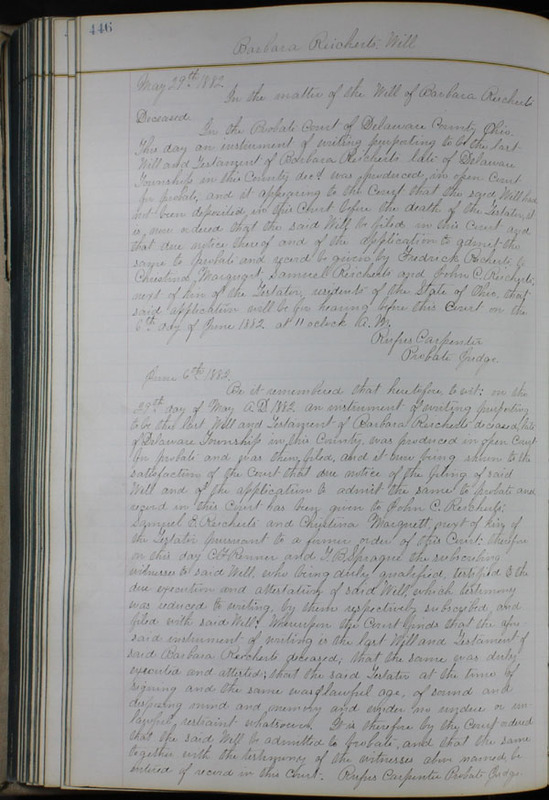 446
Barbara Reicherts Will
May 29th 1882.
In the matter of the Will of Barbara Reicherts
Deceased
In the Probate Court of Delaware County Ohio.
This day an instrument of writing purporting to be the last
Will and Testament of Barbara Reicherts late of Delaware
Township in this County decd was produced in open Court
for probate, and it appearing to the Court that the said Will had
not been deposited in this Court before the death of the Testator, it
is now ordered that the said Will be filed in this Court and
that due notice thereof and of the application to admit the
same to Probate and record be given by Fredrick Richerts, to
Christina Marguet, Samuel Reicherts and John C. Reicherts,
next of kin of the Testator, residents of the State of Ohio, that
said application will be for hearing before this Court on the
6th day of June 1882. at 11 oclock A. M.
Rufus Carpenter
Probate Judge
June 6th 1882.
Be it remembered that heretofore, to wit: on the
29th day of May A.D. 1882. an instrument of writing purporting
to be the last Will and Testament of Barbara Reicherts deceased, late
of Delaware Township in this County, was produced in open Court
for probate and was then filed, and it now being shown to the
satisfaction of the Court that due notice of the filing of said
Will and of the application to admit the same to probate and
record in this Court has been given to John C. Reicherts,
Samuel R. Reicherts and Christina Marguett, next of kin of
the Testator pursuant to a former order of this Court: therefore
on this day Renner and Sprague the subscribing
witnesses to said Will, who being duly qualified, testified to the
due execution and attestation of said Will, which testimony
was reduced to writing, by them respectively subscribed, and
filed with said Will: Whereupon the Court finds that the afore
said instrument of writing is the last Will and Testament of
said Barbara Reicherts deceased, that the same was duly
executed and attested; that the said Testator at the time of
signing and the same was of lawful age, of sound and
disposing mind and memory and under no undue or un-
lawful restraint whatsoever. It is therefore by the Court ordered
that the said Will be admitted to Probate, and that the same
together with the testimony of the witnesses above named, be
entered of record in this Court. Rufus Carpenter Probate Judge